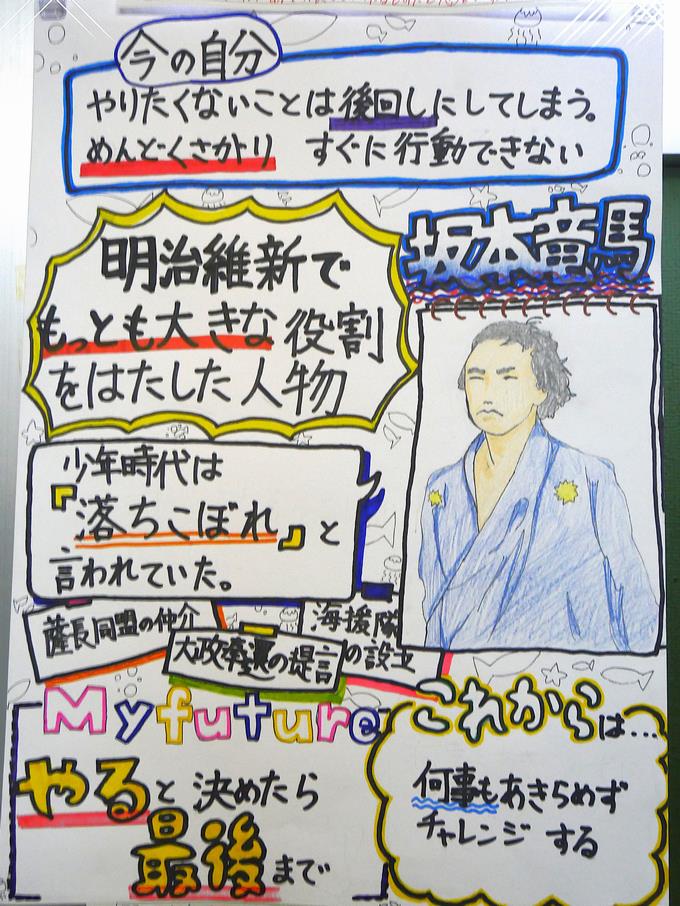 今の自分
やりたくないことは後回しにしてしまう。
めんどくさがり すぐに行動できない
坂本竜馬
明治維新で
もっとも大きな役割
をはたした人物
少年時代は
『落ちこぼれ』と
言われていた。
薩長同盟の仲介
大政奉還の提言
海援隊
の設立
My future
やると決めたら
最後まで
これからは…
何事もあきらめず
チャレンジする